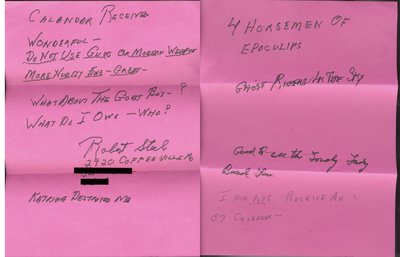 CALANDAR RECEIVED
WONDERFUL —
DO NOT USE GUNS OR MODERN WEAPON
MORE NUDITY FINE — GREAT —
WHAT ABOUT THE GOAT BOY — ?
WHAT DO I OWE — WHO?
Robert
2920 COFFEEVILLE
KATRINA DESTROYED ME
4 HORSEMEN OF
EPOCULIPS
GHOST RIDERS IN THE SKY
Good to see the Lady
Board
I DID NOT RECEIVE AN
07 CALENDAR —